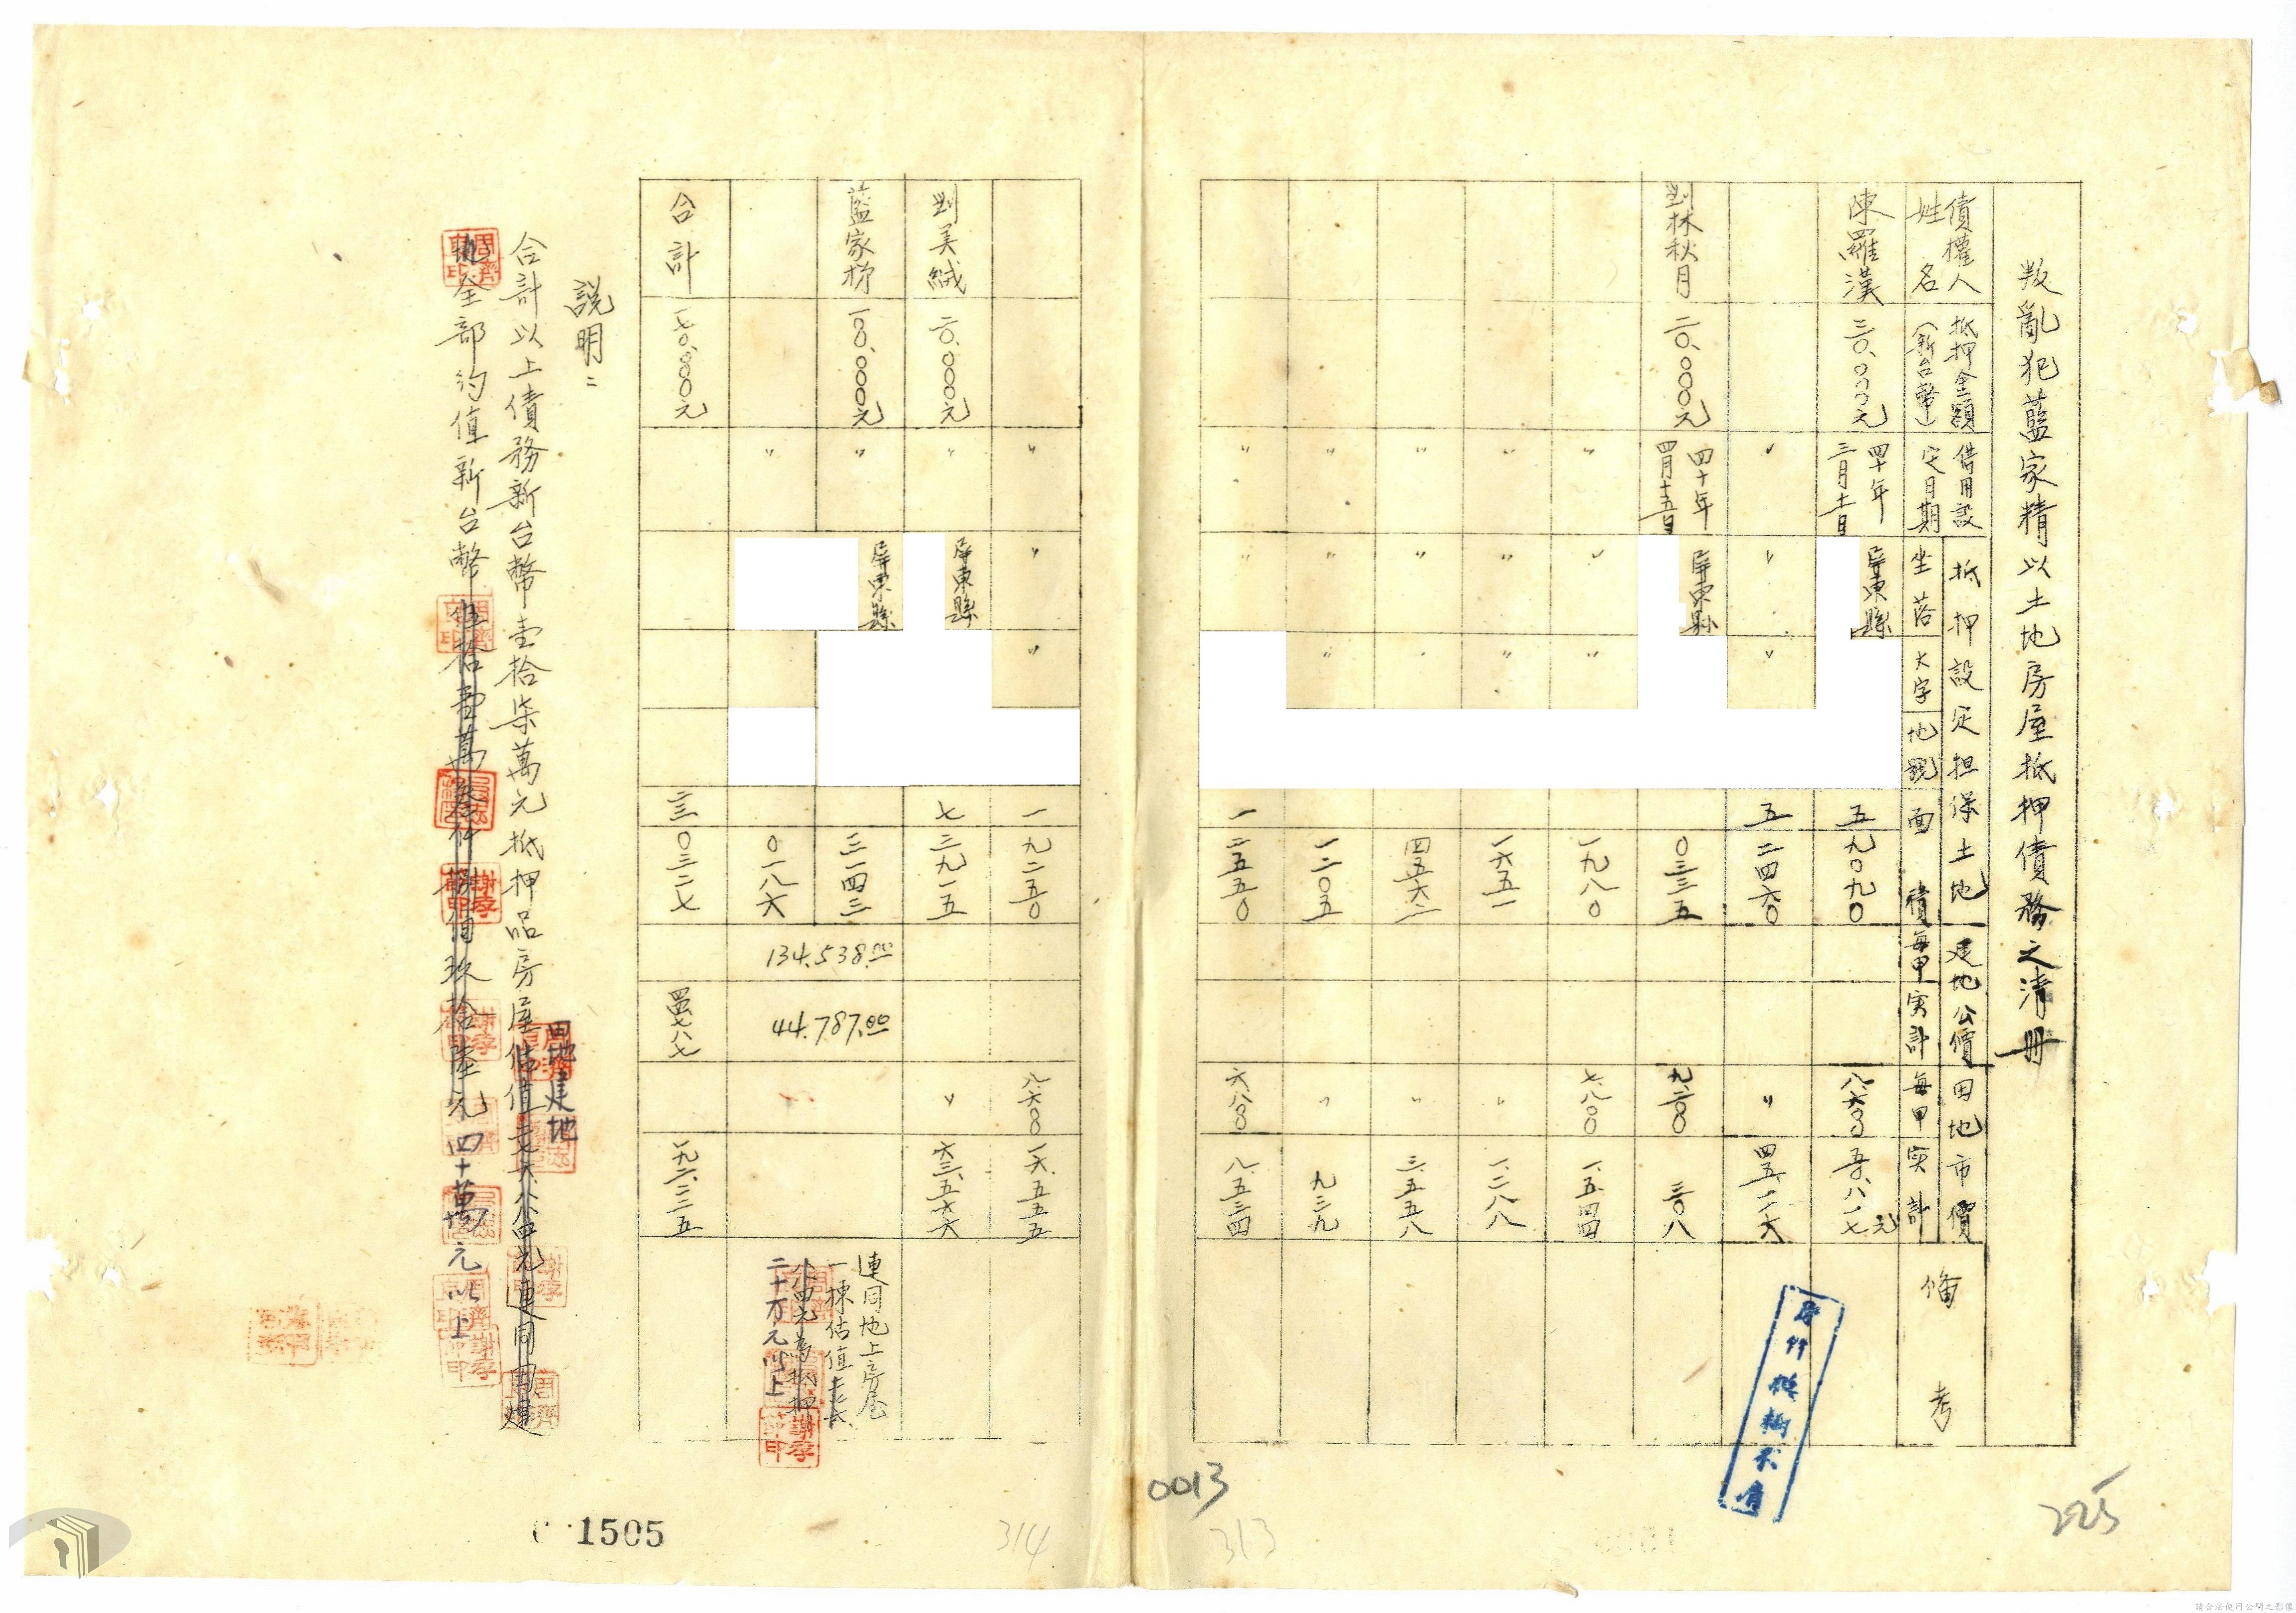 叛亂犯藍家精以土地房屋抵押債務之清冊
債權人姓名
抵押金額（新台幣）
借用設定日期
抵押設定担保土地
坐落
大字
地號
面積
建地公價
每甲
实計
田地市價
每甲
实計
備考
陳羅漢
三〇.〇〇〇元
四十年三月十一日
屏東縣
五
九〇九〇
八.六〇〇
五〇.八一七元
〃
〃
〃
五
二四六〇
〃
四五.一一六
劉林秋月
二〇.〇〇〇元
四十年四月十五日
屏東縣
〇三三五
九.二〇〇
三〇八
〃
〃
〃
一九八〇
七.八〇〇
一.五四四
〃
〃
〃
一六五一
〃
一.二八八
〃
〃
〃
四五六一
〃
三.五五八
〃
〃
〃
一二〇五
〃
九三九
〃
〃
一
二五五〇
六.八〇〇
八.五三四
〃
〃
〃
一
九二五〇
八.六〇〇
一六.五五五
劉美絨
二〇.〇〇〇元
〃
屏東縣
七
三九一五
〃
六三.五六六
藍家栘
一〇〇.〇〇〇元
〃
屏東縣
三一四三
134.538.00
44.787.00
連同地上房屋
一棟估值
二十万元以上
〃
〇一八六
合計
一七〇.〇〇〇元
二三
〇三二七
四四七八七
一九二.二二五
說明：
合計以上債務新台幣壹拾柒萬元抵押品房屋
田地建地
連同田建
地全部約值新台幣
四十萬元以上
原件模糊不清
0013
225
313
314
1505
請合法使用公開之影像